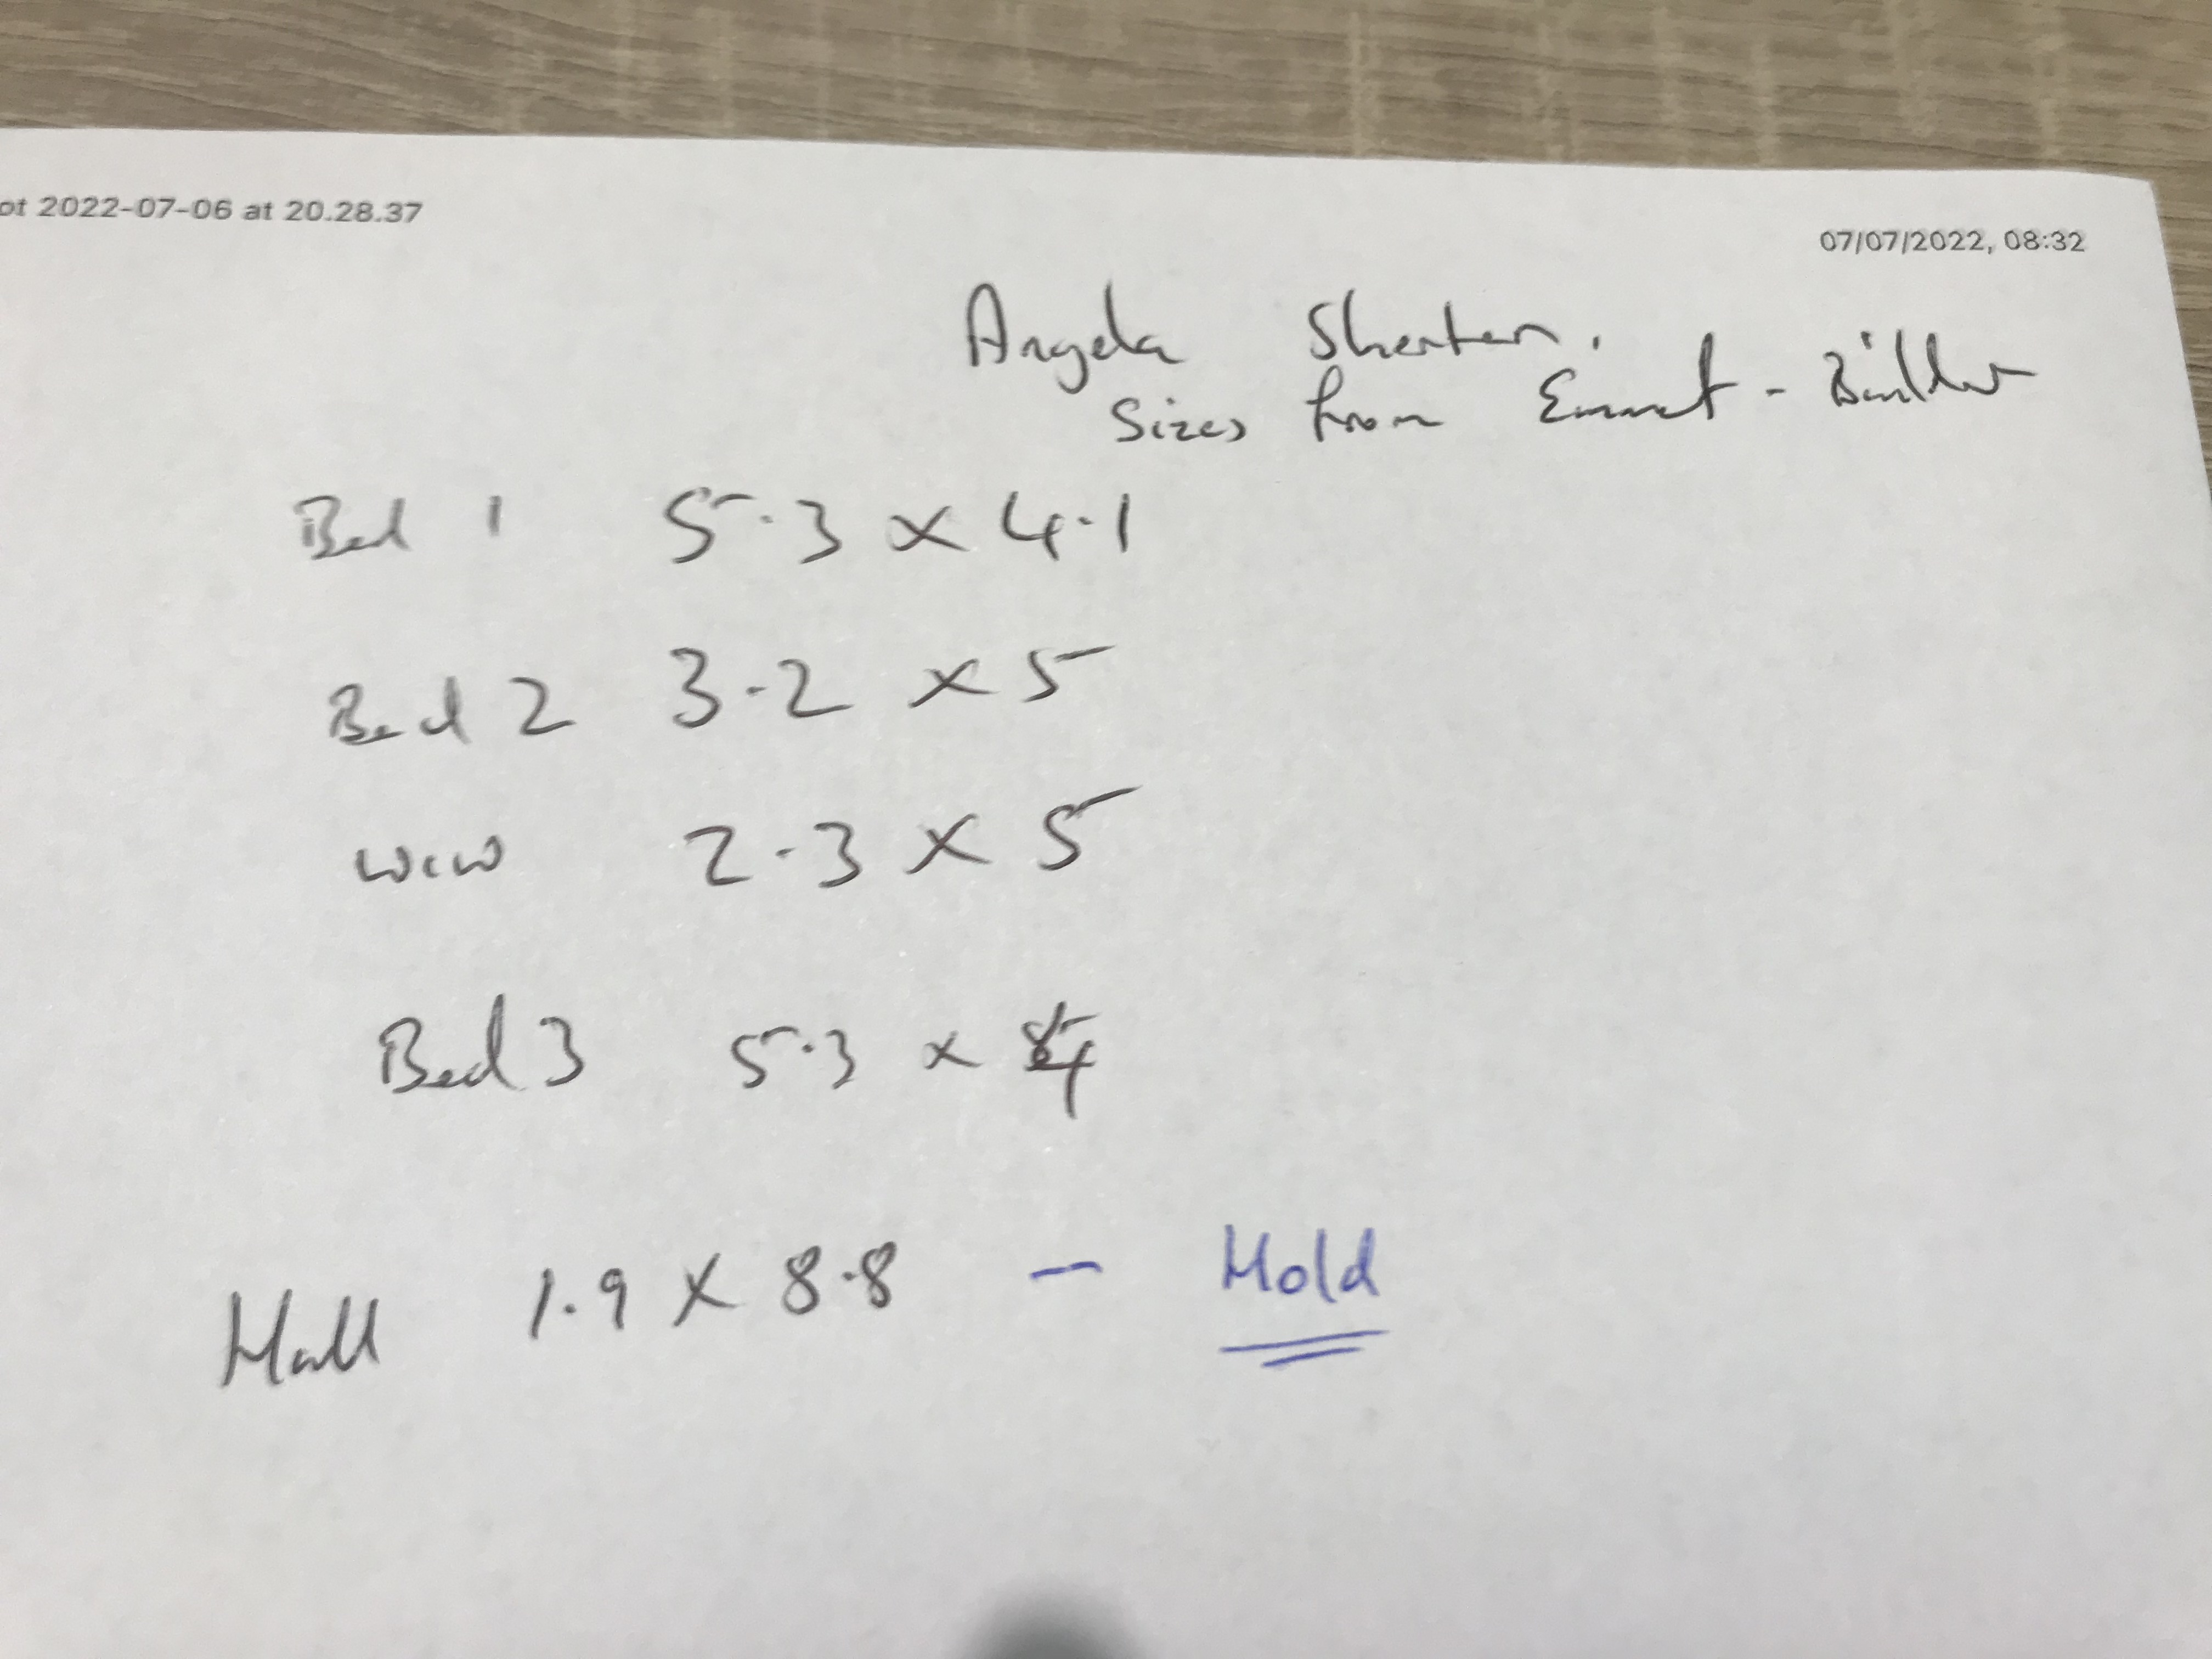 ot 2022-07-06 at 20.28.37
07/07/2022, 08:32
Angela
Sizes from Emmet - Builder
Bed 1 5.3 x 4.1
Bed 2 3.2 x 5
WIW 2.3 x 5
Bed 3 5.3 x 4
Hall 1.9 x 8.8 - Hold